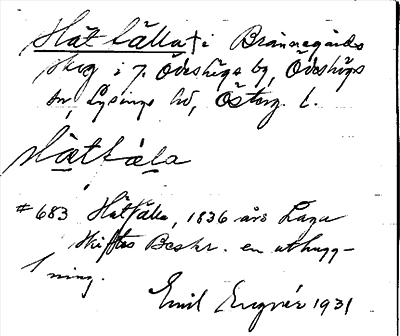 Håtkällan i Brännegårds
skog i 7. Ödeshögs by, Ödeshögs
sn, Lysings hd, Österg. l.
Håtkäla
# 683 Håtkälla, 1836 års Laga
Skiftes Beskr. en uthugg-
ning.
Emil 1931